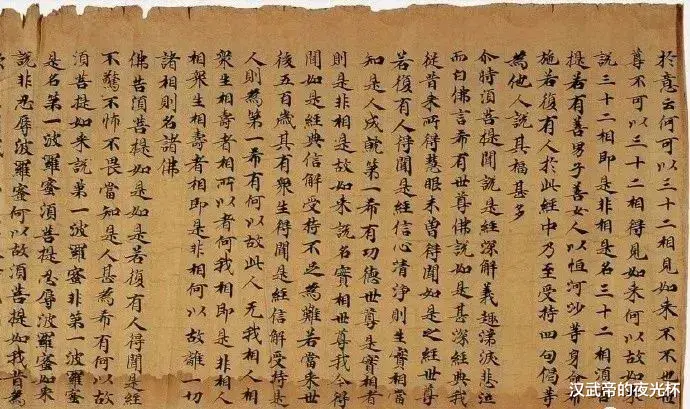 於意云何可以三十二相見如来不不也世
尊不可以三十二相得見如来何以故如来
説三十二相即是非相是名三十二相須菩
提若有善男子善女人以恒河沙等身命
施若復有人於此經中乃至受持四句偈等
為他人說其福甚多
尒時須菩提聞說是經深解義趣涕淚悲泣
而白佛言希有世尊佛說如是甚深經典我
從昔来所得慧眼未曽得聞如是之經世尊
若復有人得聞是經信心清淨則生實相當
知是人成就第一希有功德世尊是實相者
則是非相是故如来說名實相世尊我今得
聞如是經典信解受持不足為難若當来世
後五百歲其有衆生得聞是經信解受持是
人則為第一希有何以故此人无我相人相
衆生相壽者相所以者何我相即是非相人
相衆生相壽者相即是非相何以故離一切
諸相則名諸佛
佛告須菩提如是如是若復有人得聞是經
不驚不怖不畏當知是人甚為希有何以故
須菩提如来說第一波羅蜜非第一波羅蜜
是名第一波羅蜜須菩提忍辱波羅蜜如来
說非忍辱波羅蜜何以故須菩提如我昔為
汉武帝的夜光杯